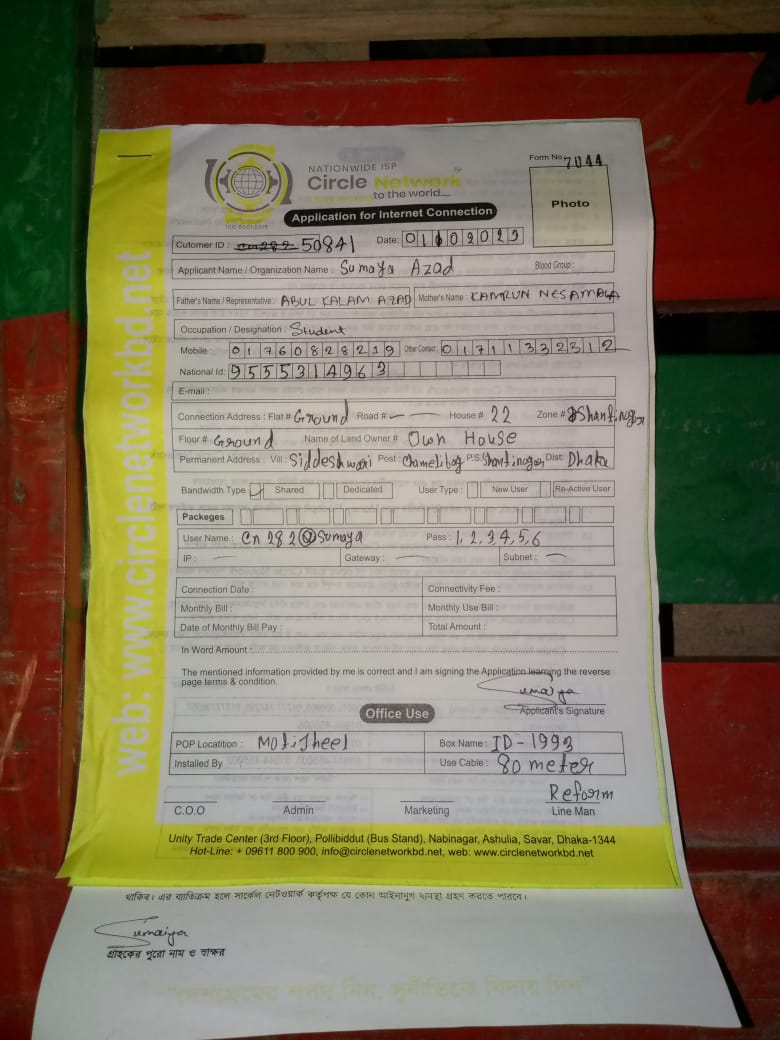 NATIONWIDE ISP
Circle Network
to the world...
ISO 9001:2015
Form No 7044
Photo
Application for Internet Connection
Cutomer ID : 50841 Date: 01 02023
Applicant Name / Organization Name : Sumaya Azad Blood Group :
Father's Name / Representative : ABUL KALAM AZAD Mother's Name : KAMRUN
Occupation / Designation : Student
Mobile 01760828219 Other Contact : 01711332312
National Id: 9555314963
E-mail :
Connection Address : Flat # Ground Road # — House # 22 Zone # Shantinagar
Floor # Ground Name of Land Owner # Own House
Permanent Address : Vill : Siddeshwari Post : Chamelibag P.S. Shantinagar Dist: Dhaka
Bandwidth Type ✓ Shared Dedicated User Type : New User Re-Active User
Packeges
User Name : Cn282@Sumaya Pass : 1,2,3,4,5,6
IP : — Gateway : — Subnet : —
Connection Date : Connectivity Fee :
Monthly Bill : Monthly Use Bill :
Date of Monthly Bill Pay : Total Amount :
In Word Amount :
The mentioned information provided by me is correct and I am signing the Application learning the reverse
page terms & condition.
Sumaiya
Applicant's Signature
Office Use
POP Locatition : Motijheel Box Name : ID-1993
Installed By Use Cable : 80 meter
Reform
C.O.O Admin Marketing Line Man
Unity Trade Center (3rd Floor), Pollibiddut (Bus Stand), Nabinagar, Ashulia, Savar, Dhaka-1344
Hot-Line: + 09611 800 900, info@circlenetworkbd.net, web: www.circlenetworkbd.net
web: www.circlenetworkbd.net
থাকিব। এর ব্যতিক্রম হলে সার্কেল নেটওয়ার্ক কর্তৃপক্ষ যে কোন আইনানুগ ব্যবস্থা গ্রহণ করতে পারবে।
Sumaiya
গ্রাহকের পুরো নাম ও স্বাক্ষর
"দেশপ্রেমের শপথ নিন, দুর্নীতিকে বিদায় দিন"